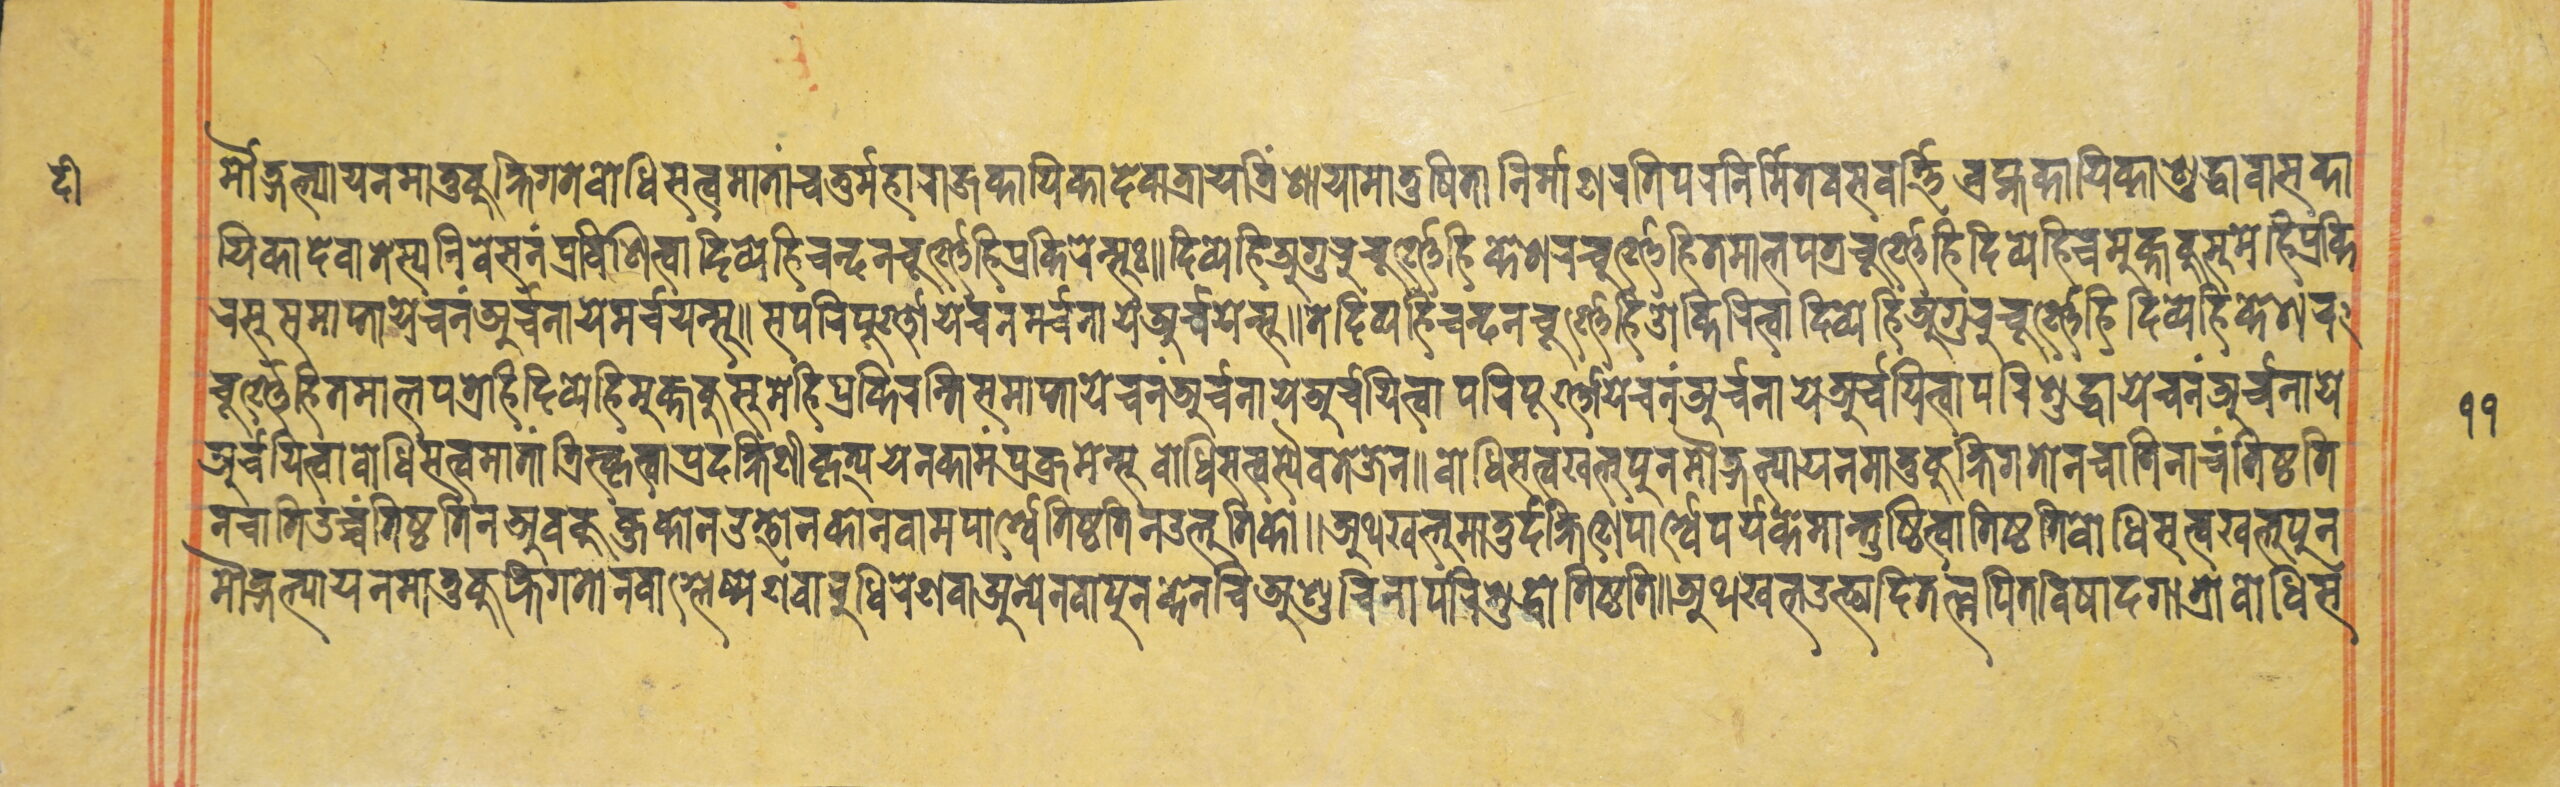 दी
मौद्गल्यायनमातुकुक्षिगते बोधिसत्वमातां चतुर्महाराजकायिका देवा त्रायत्रिंशा यामा तुषिता निर्माणरतिपरनिर्मितवसवर्त्ति ब्रह्मकायिका शुद्धावासका
यिका देवा तस्य निवेसनं प्रविशित्वा दिव्येहि चन्दनचूर्ण्णेहि प्रकिरेन्सुः॥ दिव्येहि अगुरुचूर्ण्णेहि केशरचूर्ण्णेहि तमालपत्रचूर्ण्णेहि दिव्येहि च मुक्तकुसुमेहि प्रकि
रंसु समाप्ताये चनं अर्चनाये मर्चयेन्सु॥ सपरिपूर्ण्णाये चनमर्चनाये अर्चयेन्सु॥ ते दिव्येहि चन्दनचूर्ण्णेहि ओकिरित्वा दिव्येहि अगुरुचूर्ण्णेहि दिव्येहि केशर
चूर्ण्णेहि तमालपत्रेहि दिव्येहि मुक्तकुसुमेहि प्रकिरन्ति समाप्ताये चनं अर्चनाये अर्चयित्वा परिपूर्ण्णाये चनं अर्चनाये अर्चयित्वा परिशुद्धाये चनं अर्चनाये
अर्चयित्वा बोधिसत्वमातां त्रिस्कृत्वा प्रदक्षिणीकृत्य येनकामं प्रक्रमेन्सु बोधिसत्वस्यैव तेजेन॥ बोधिसत्व खलु पुन मौद्गल्यायन मातुकुक्षिगतो न चातिनीचं तिष्ठति
न चाति उच्चं तिष्ठति न अवकुब्जको न उत्तानको न वामपार्श्वे तिष्ठति न उत्कुतिको॥ अथ खलु मातुर्दक्षिणे पार्श्वे पर्यंकमान्तुष्ठित्वा तिष्ठति बोधिसत्व खलु पुन
मौद्गल्यायन मातुकुक्षिगतो न वा श्लेष्मेण वा रुधिरेण वा अन्येन वा पुन केनचि अशुचिना परिशुद्धो तिष्ठति॥ अथ खलु
११